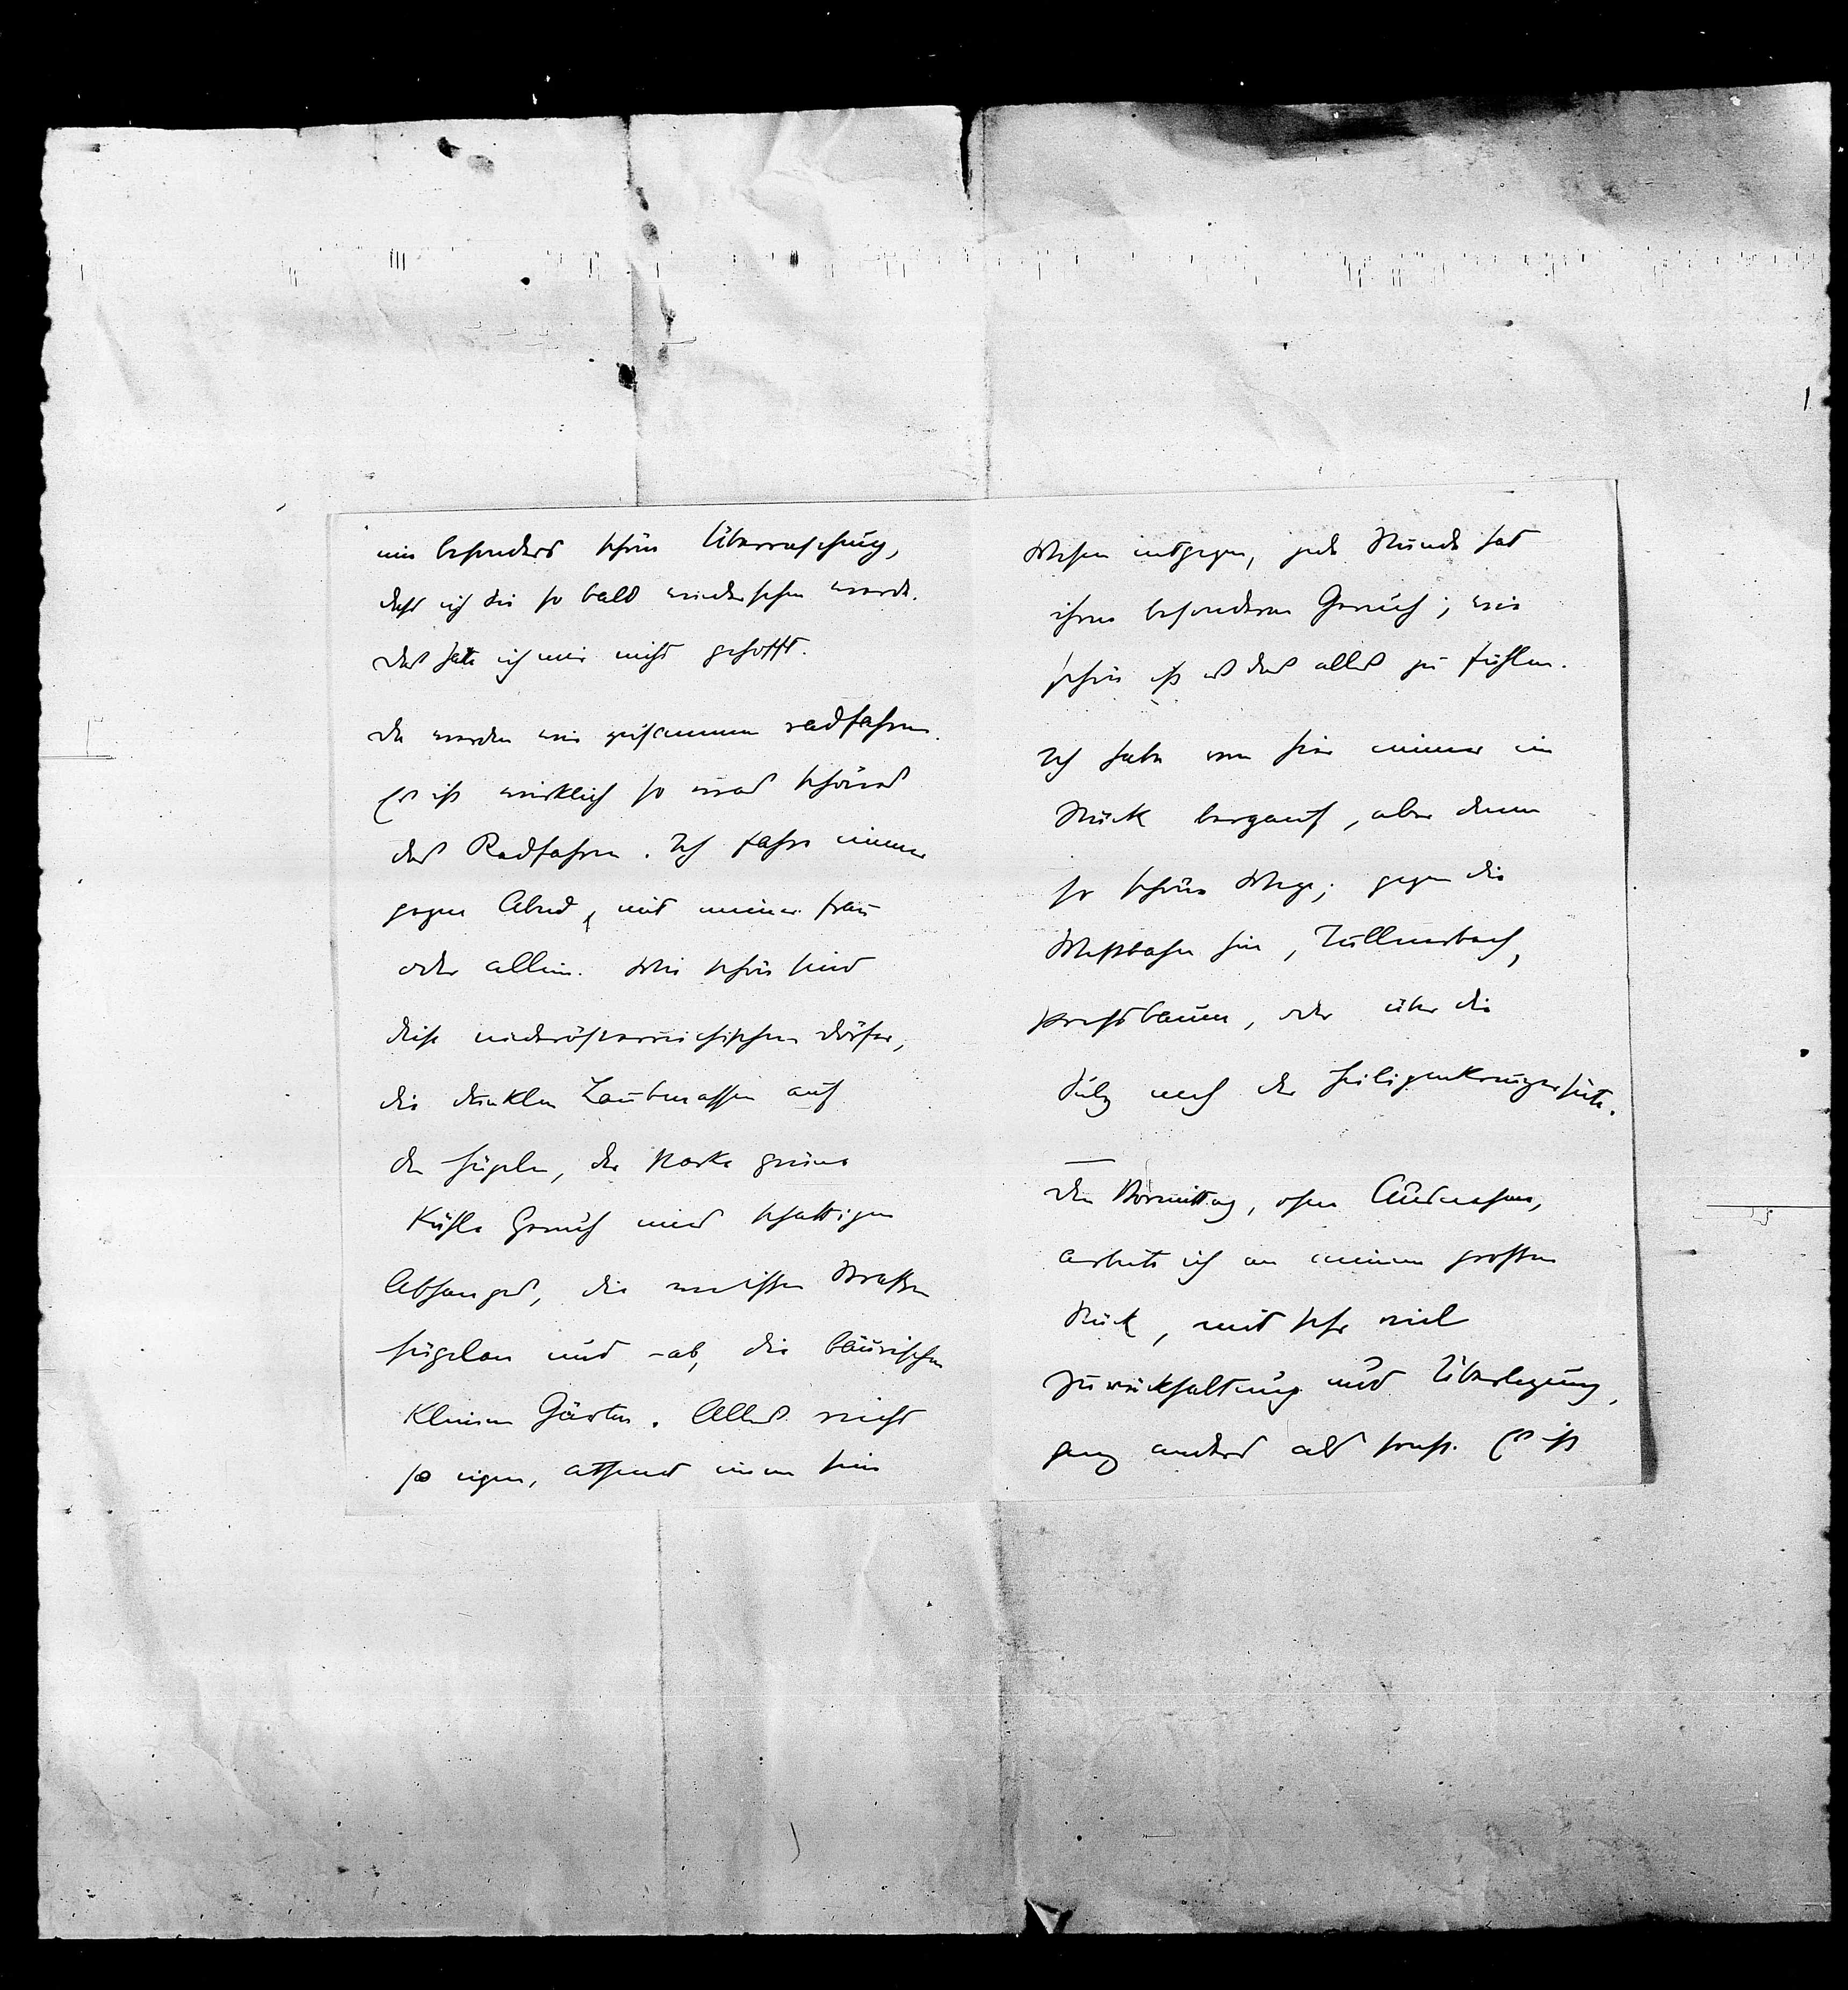 eine besonders schöne Überraschung,
dass ich Sie so bald wiedersehen werde.
Das hätte ich mir nicht gehofft.
Da werden wir zusammen radfahren.
Es ist wirklich so was schönes
das Radfahren. Ich fahre immer
gegen Abend, mit meiner Frau
oder allein. Wie schön sind
diese niederösterreichischen Dörfer,
die dunklen Laubmassen auf
den Hügeln, der starke grüne
kühle Geruch eines schattigen
Abhanges, die weissen Strassen
hügelan und -ab, die bäurischen
kleinen Gärten. Alles riecht
so eigen, athmet einem sein
Wesen entgegen, jede Stunde hat
ihren besonderen Geruch; wie
schön ist es das alles zu fühlen.
Ich habe von hier immer ein
Stück bergauf, aber dann
so schöne Wege; gegen die
Westbahn hin, Tullnerbach,
Pressbaum, oder über die
Sulz nach der Heiligenkreuzerseite.
Den Vormittag, ohne Ausnahme,
arbeite ich an meinem grossen
Stück, mit sehr viel
Zurückhaltung und Überlegung,
ganz anders als sonst. Es ist